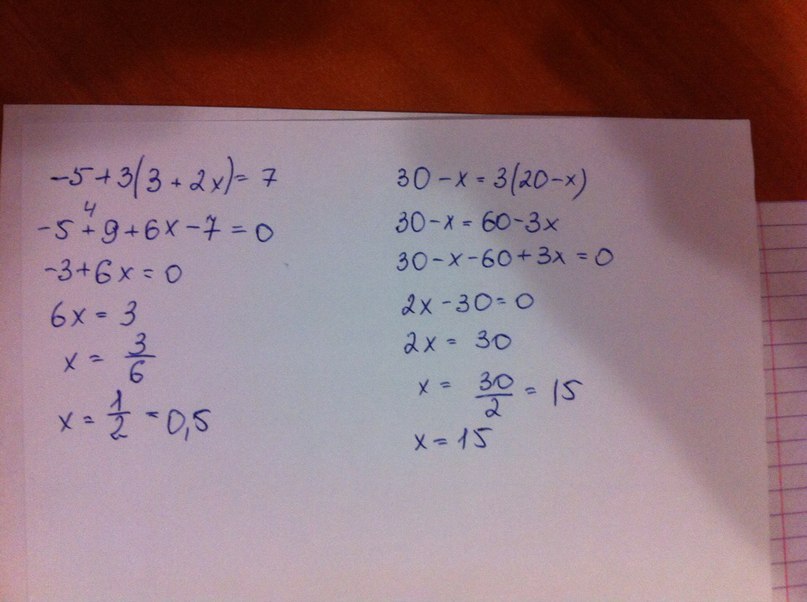 -5+3(3+2x)=7
4
-5+9+6x-7=0
-3+6x=0
6x=3
x=3/6
x=1/2=0,5
30-x=3(20-x)
30-x=60-3x
30-x-60+3x=0
2x-30=0
2x=30
x=30/2=15
x=15